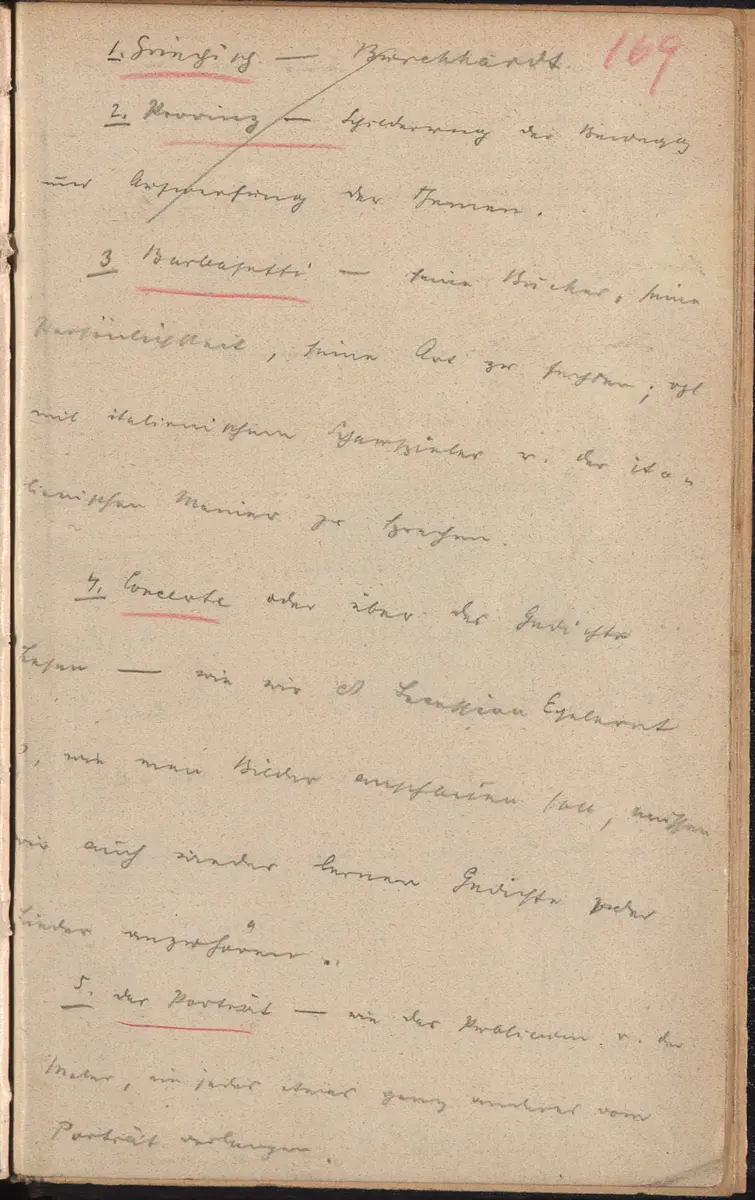 1. Griechisch. — Burckhardt. 169
2. Provinz — Schilderung der Bewegg
und Auswerfung der Themen.
3 Barbasetti — seine Bücher, seine
Persönlichkeit, seine Art zu fechten; vgl
mit italienischem Schauspieler u. der ita-
lienischen Manier zu sprechen.
4. Concerte oder über das Gedichte
Lesen — wie wir Secession gelernt
wie man Bilder anschauen soll, müssen
wir auch wieder lernen Gedichte oder
Lieder anzuhören.
5. das Porträt — wie das Publicum u. der
Maler, ein jedes etwas ganz anderes vom
Porträt verlangen.